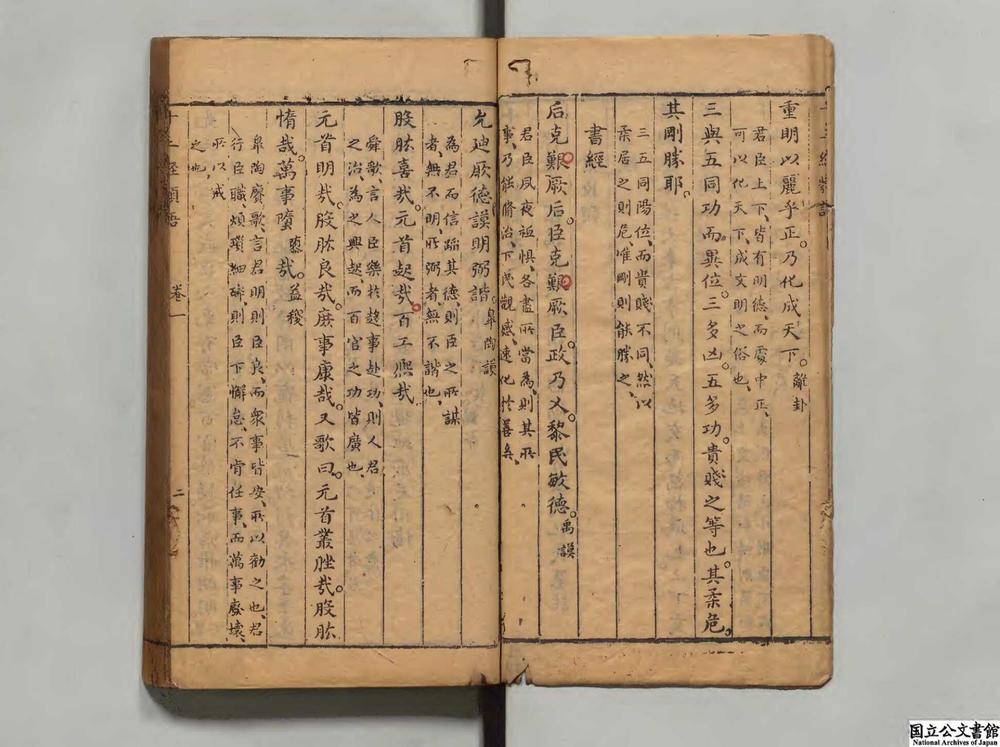 重明以麗乎正。乃化成天下。離卦
君臣上下、皆有明德、而處中正、
可以化天下、成文明之俗也、
三與五同功。而異位。三多凶。五多功。貴賤之等也。其柔危。
其剛勝耶。
三五同陽位、而貴賤不同、然以
柔居之則危、惟剛則能勝之、
書經
后克艱厥后。臣克艱厥臣。政乃乂。黎民敏德。禹謨
君臣夙夜祗懼、各盡所當為、則其所
事、乃能脩治、下民觀感、速化於善矣、
允迪厥德。謨明弼諧。皐陶謨
為君而信蹈其德、則臣之所謀
者、無不明、所弼者、無不諧也、
股肱喜哉。元首起哉。百工熙哉。
舜歌言、人臣樂於趍事赴功、則人君
之治、為之興起、而百官之功皆廣也、
元首明哉。股肱良哉。庶事康哉。又歌曰。元首叢脞哉。股肱
惰哉。萬事墮哉。益稷
皐陶賡歌、言君明、則臣良、而衆事皆安、所以勸之也、君
行臣職、煩瑣細碎、則臣下懈怠、不肯任事、而萬事廢壞、
所以戒
之也、
卷一
二
国立公文書館
National Archives of Japan